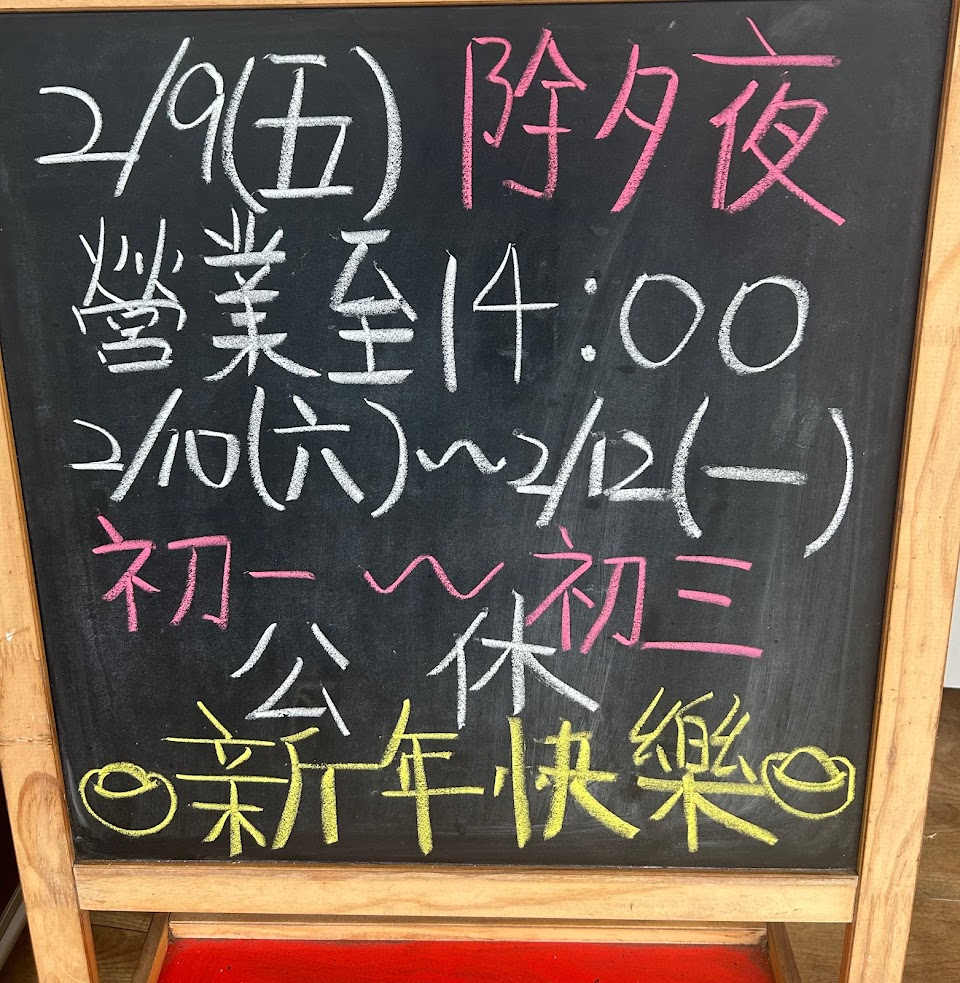 2/9(五) 除夕夜
營業至14:00
2/10(六)～2/12(一)
初一～初三
公休
新年快樂